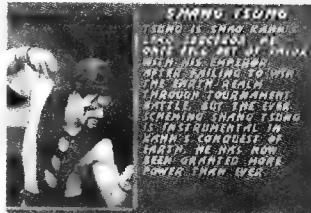 SHANG TSUNG
TSUNG IS SHAO KAHN'S
ONLY
WITH HIS EMPEROR
AFTER FAILING TO WIN
THE EARTH REALM
THROUGH TOURNAMENT
BATTLE. BUT THE EVER
SCHEMING SHANG TSUNG
IS INSTRUMENTAL IN
KAHN'S CONQUEST OF
EARTH. HE HAS NOW
BEEN GRANTED MORE
POWER THAN EVER